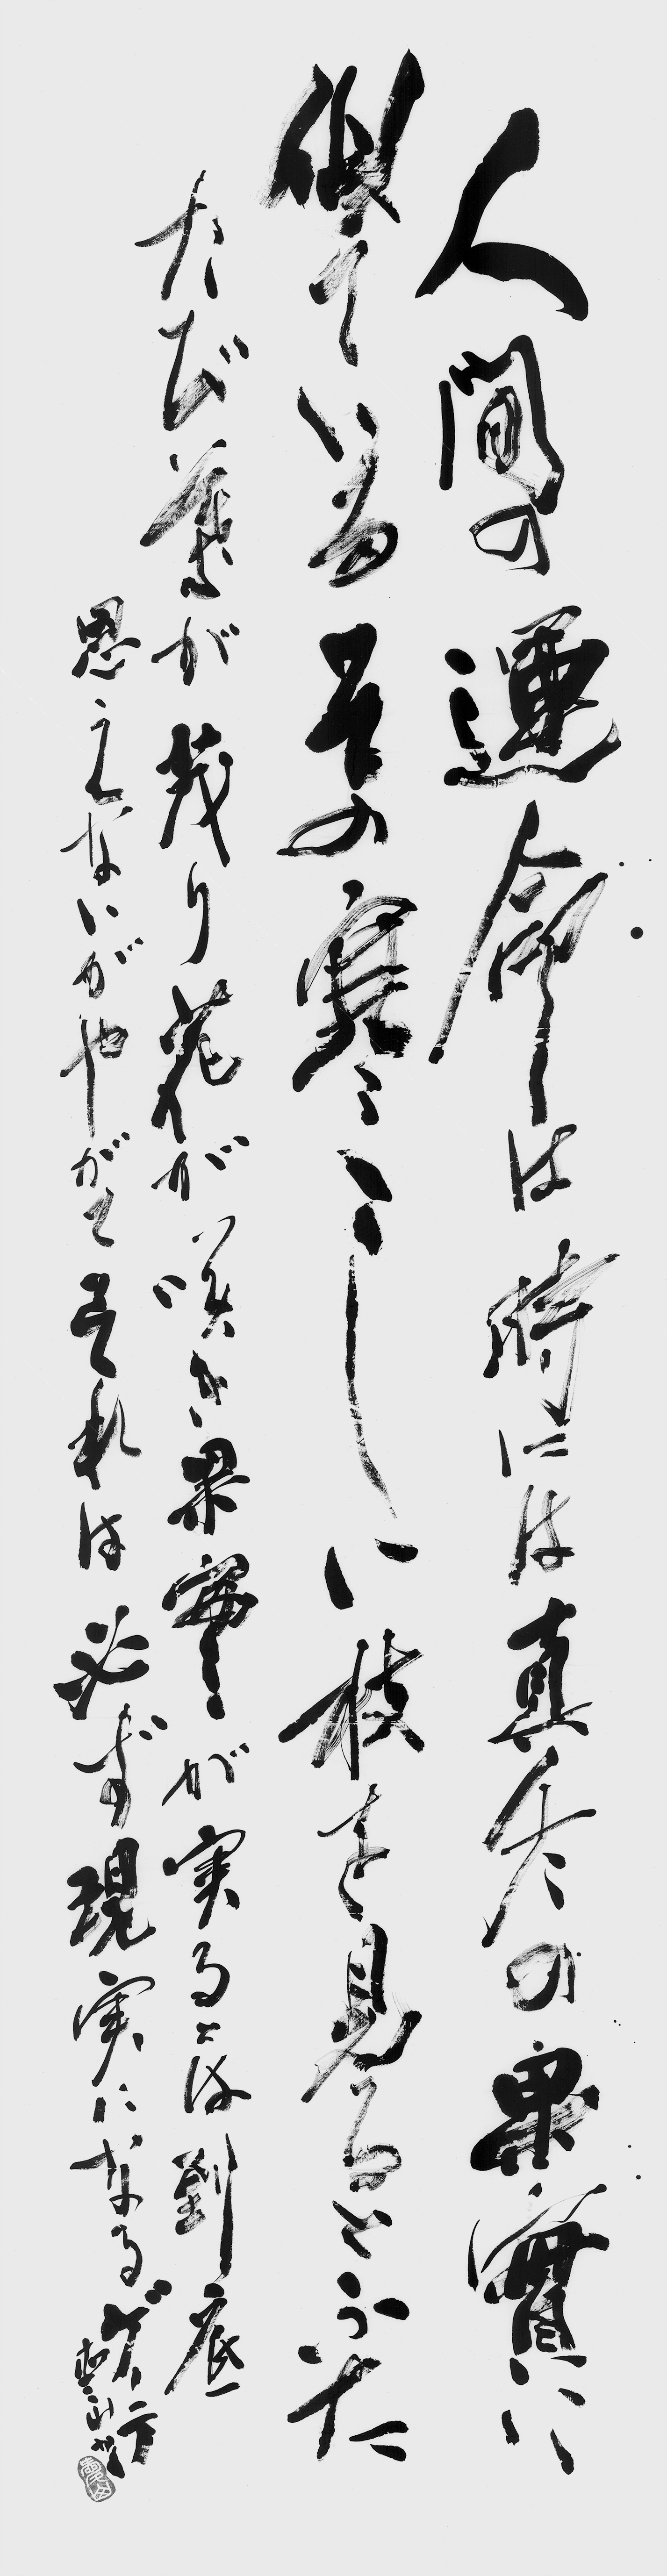 人間の運命は時には真冬の果實に
似ているその寒々しい枝を見るとふた
たび葉が茂り花が咲き果實が実るとは到底
思えないがやがてそれは必ず現実になる ゲーテ